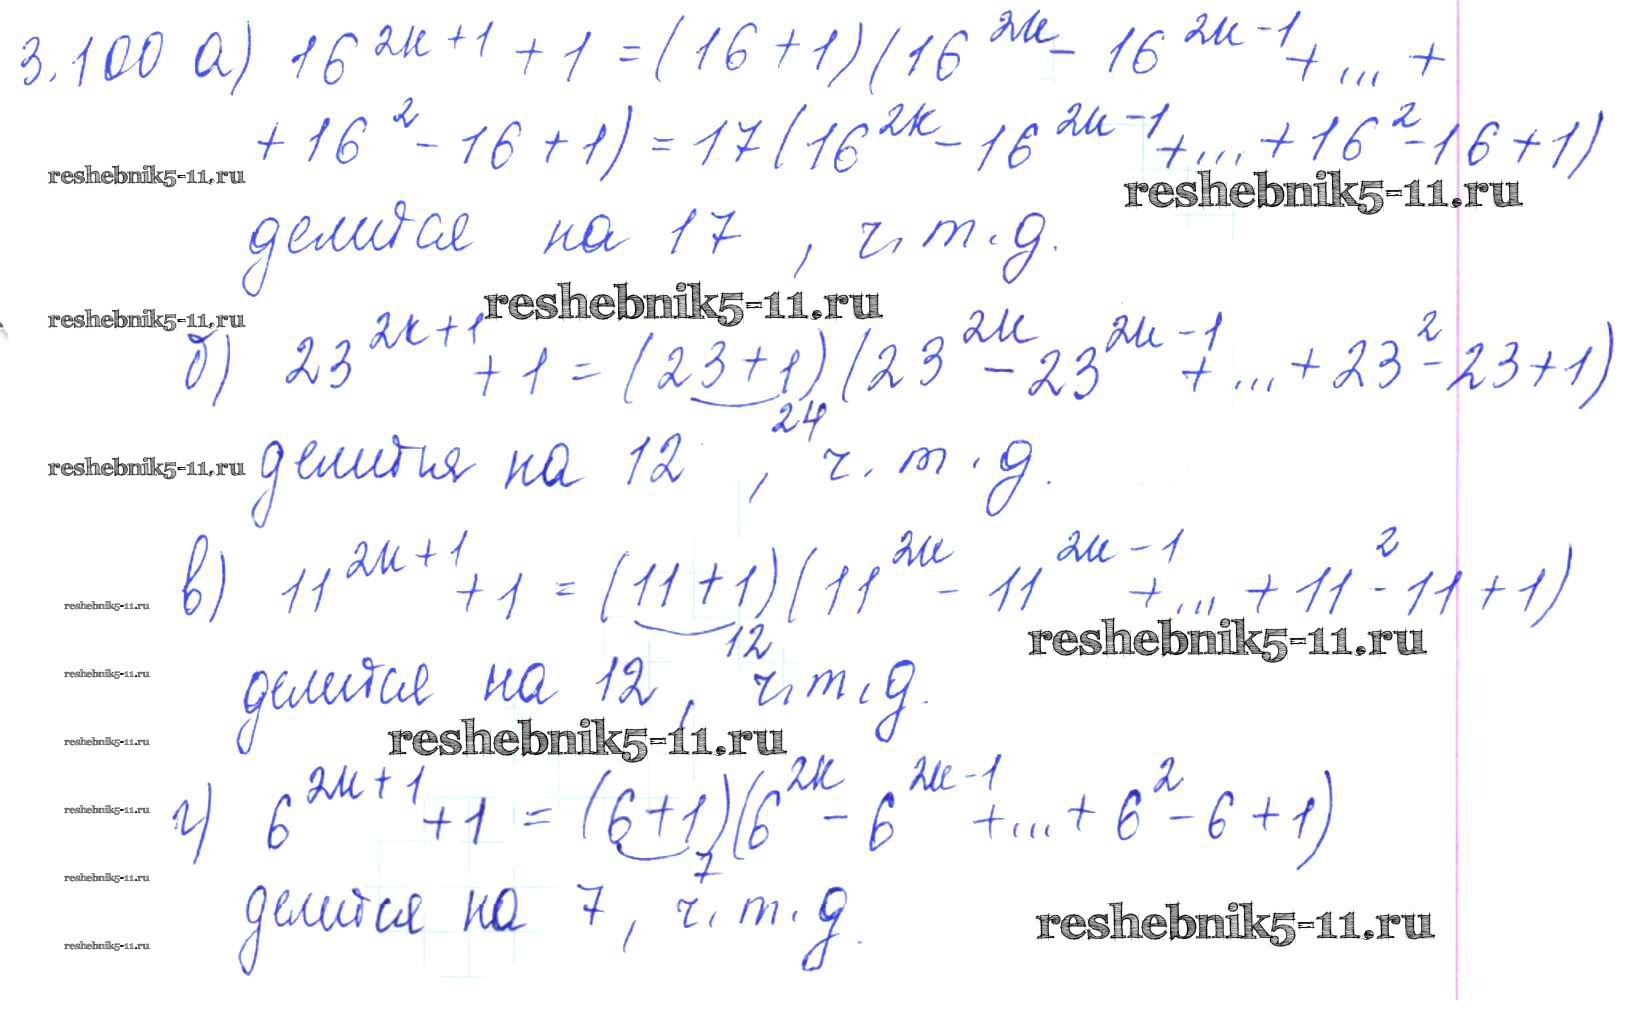 3.100 а) 16^{2k+1} + 1 = (16 + 1)(16^{2k} - 16^{2k-1} + ... +
+ 16^2 - 16 + 1) = 17(16^{2k} - 16^{2k-1} + ... + 16^2 - 16 + 1)
reshebnik5-11.ru
reshebnik5-11.ru
делится на 17, ч.т.д.
reshebnik5-11.ru
reshebnik5-11.ru
б) 23^{2k+1} + 1 = (23 + 1)(23^{2k} - 23^{2k-1} + ... + 23^2 - 23 + 1)
24
reshebnik5-11.ru
делится на 12, ч.т.д.
в) 11^{2k+1} + 1 = (11 + 1)(11^{2k} - 11^{2k-1} + ... + 11^2 - 11 + 1)
reshebnik5-11.ru
12
reshebnik5-11.ru
reshebnik5-11.ru
делится на 12, ч.т.д.
reshebnik5-11.ru
reshebnik5-11.ru
г) 6^{2k+1} + 1 = (6 + 1)(6^{2k} - 6^{2k-1} + ... + 6^2 - 6 + 1)
reshebnik5-11.ru
7
reshebnik5-11.ru
делится на 7, ч.т.д.
reshebnik5-11.ru
reshebnik5-11.ru